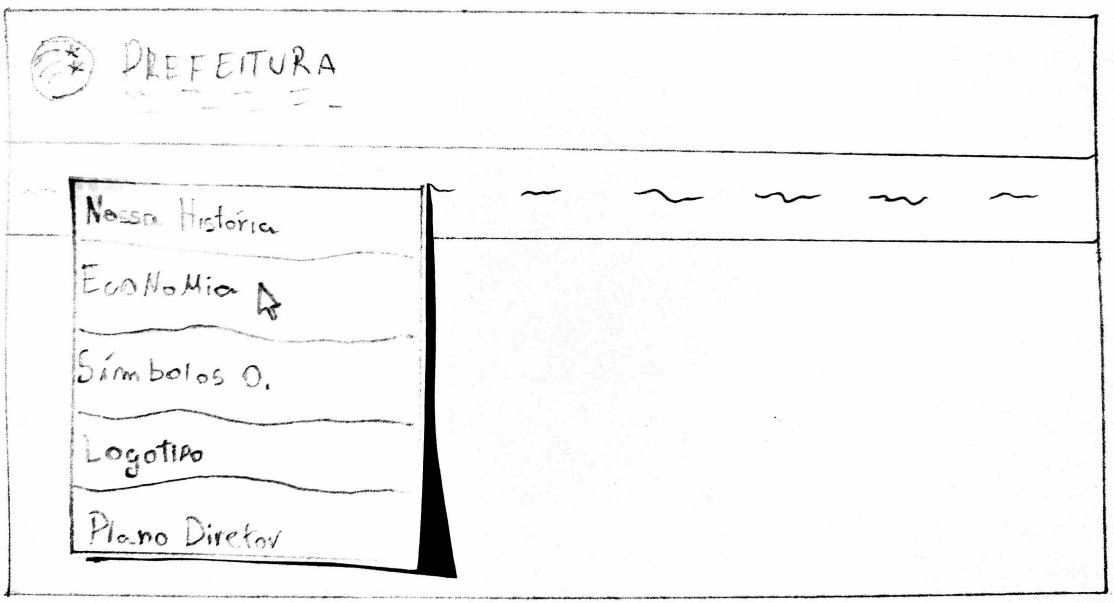 PREFEITURA
Nossa História
Economia
Símbolos O.
Logotipo
Plano Diretor